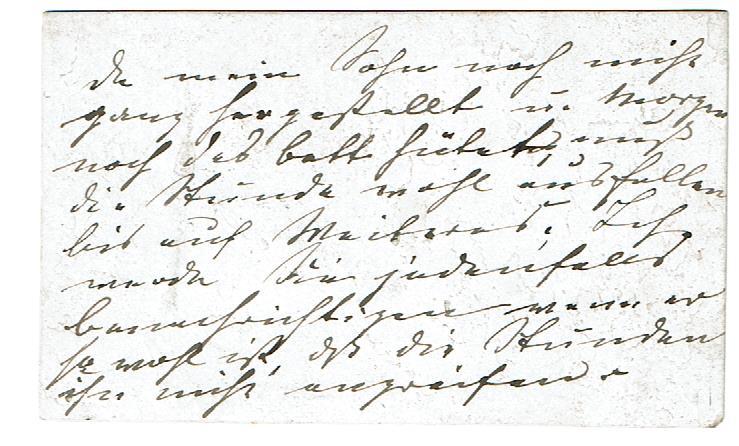 da mein Sohn noch nicht
ganz hergestellt u. Morgen
noch das bett hütet, muß
die Stunde wohl ausfallen
bis auf Weiteres. Ich
werde Sie jedenfalls
benachrichtigen wenn er
so wohl ist, dß die Stunden
ihn nicht angreifen.